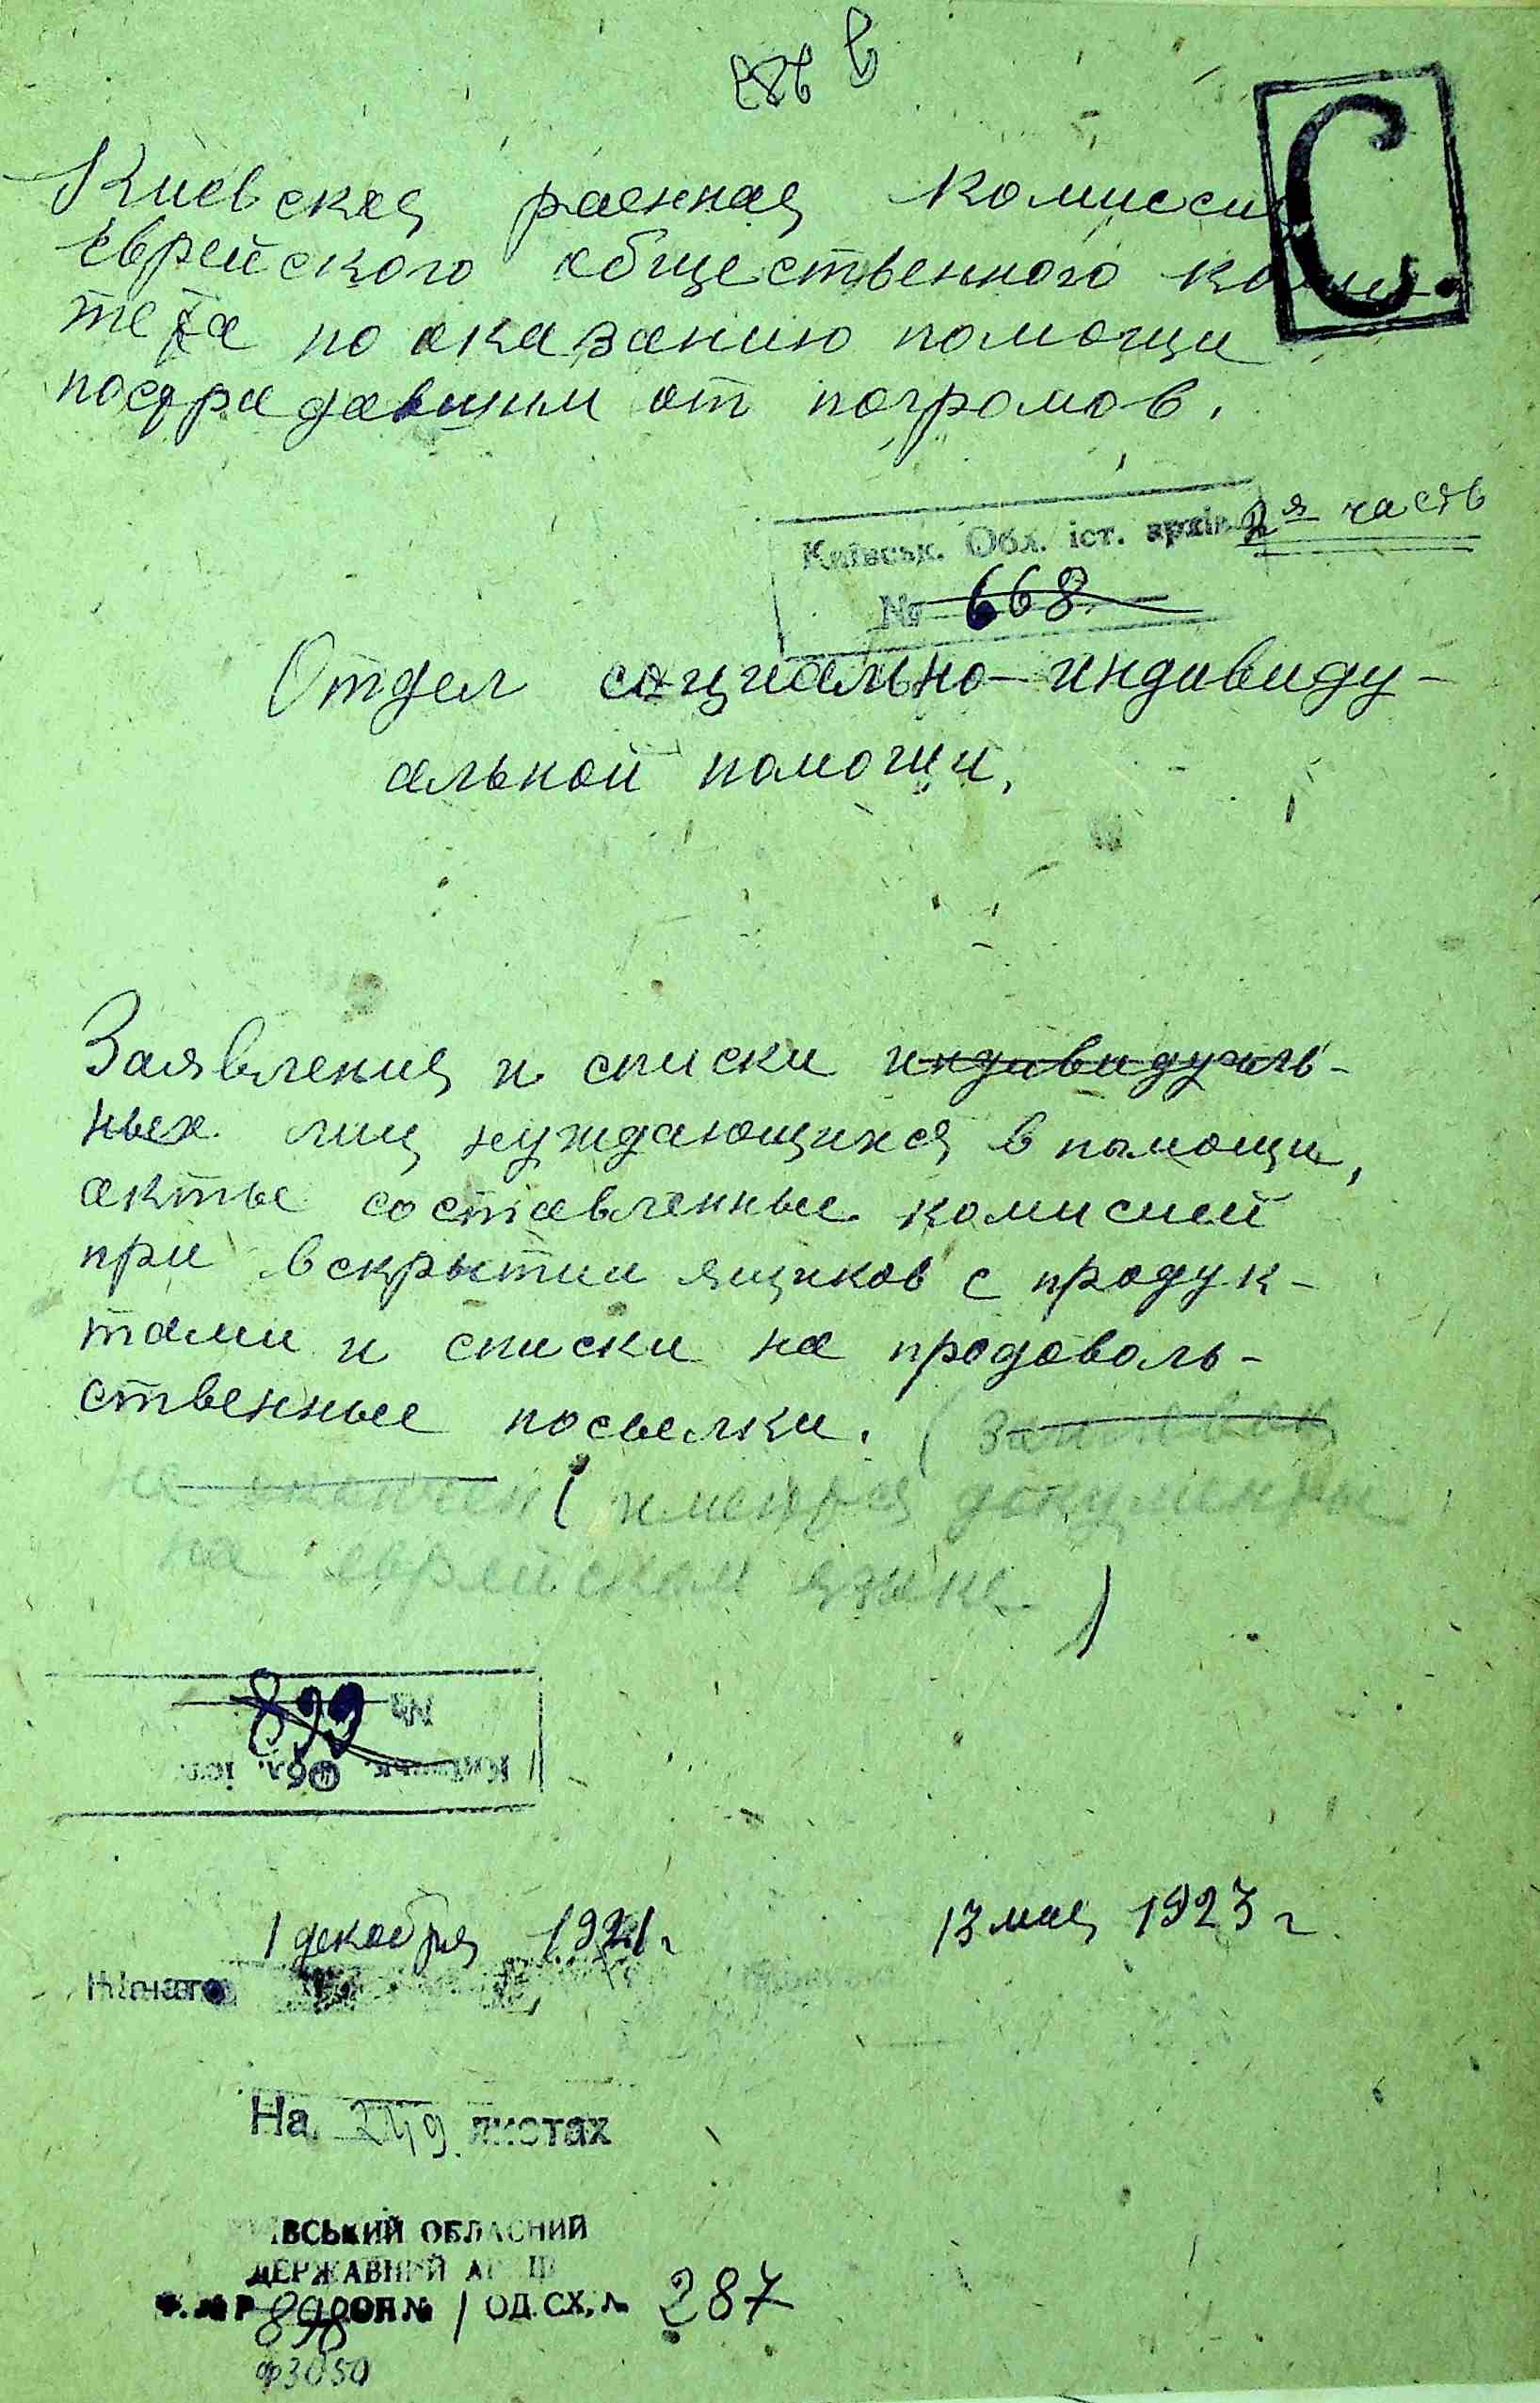 С.
Киевская раенная комиссия
Еврейского общественного коми-
тета по оказанию помощи
пострадавшим от погромов.
2я часть
Київськ. Обл. іст. архів
№ 668
Отдел социально-индивиду-
альной помощи.
Заявления и списки индивидуаль-
ных лиц нуждающихся в помощи,
акты составленные комисией
при вскрытии ящиков с продук-
тами и списки на продоволь-
ственные посылки. (
(имеются документы
на еврейском языке)
№ 899
Київськ. Обл. іст.
1 декабря 1921 г 13 мая 1923 г
Начато
На 249 листах
ИЇВСЬКИЙ ОБЛАСНИЙ
ДЕРЖАВНИЙ АРХІВ
Ф. № Р 898 ОП № 1 ОД. СХ. № 287
ф3050